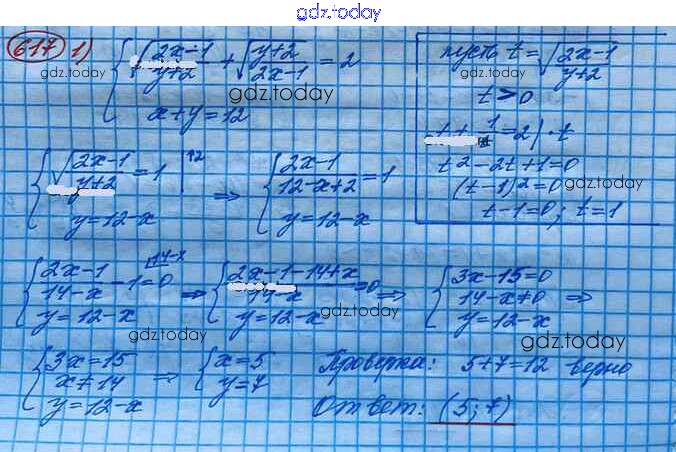 gdz.today
617 1) { √(2x-1)/(y+2) + √(y+2)/(2x-1) = 2
x+y=12
gdz.today
gdz.today
пусть t = √(2x-1)/(y+2)
gdz.today
t>0
t + 1/t = 2 | · t
t² - 2t + 1 = 0
(t-1)² = 0
gdz.today
t-1=0; t=1
{ √(2x-1)/(y+2) = 1 | ↑2
y=12-x
⇒ { (2x-1)/(12-x+2) = 1
y=12-x
{ (2x-1)/(14-x) - 1 = 0 |14-x
y=12-x
gdz.today
⇒ { (2x-1-14+x)/(14-x) = 0
y=12-x
gdz.today
⇒ { 3x-15=0
14-x≠0
y=12-x ⇒
gdz.today
{ 3x=15
x≠14
y=12-x
⇒ { x=5
y=7
Проверка: 5+7=12 верно
gdz.today
Ответ: (5;7)